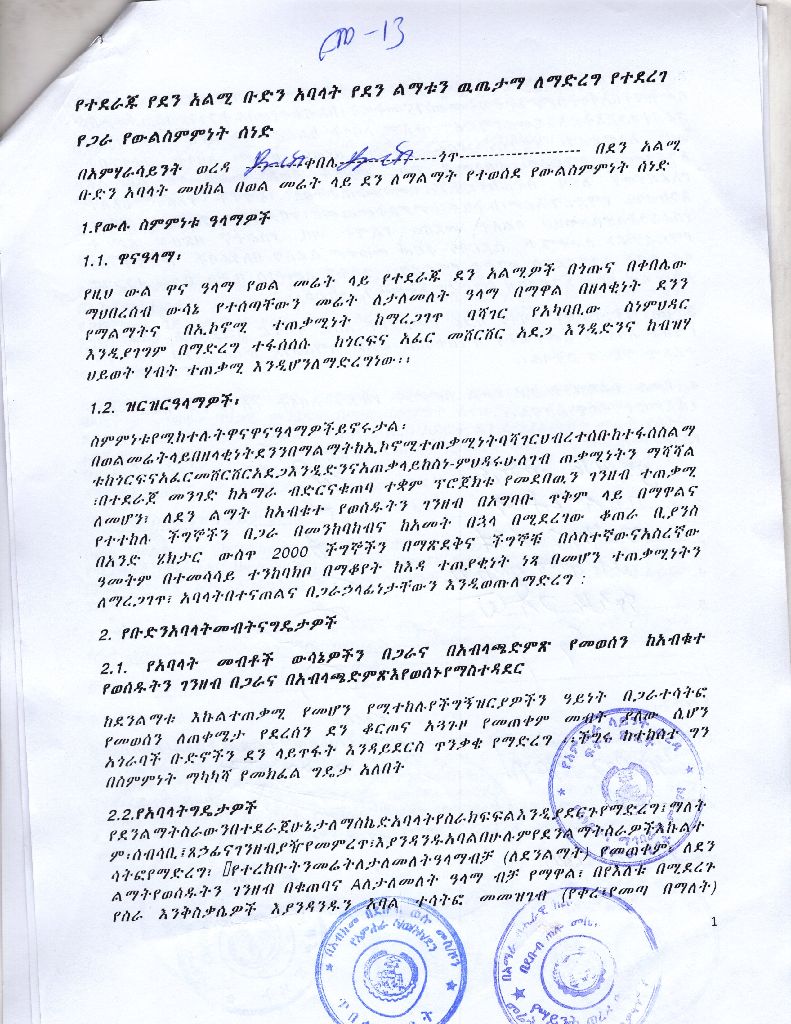 -13
የተደራጁ የደን አልሚ ቡድን አባላት የደን ልማቱን ዉጤታማ ለማድረግ የተደረገ
የጋራ የውልስምምነት ሰነድ
በአምሃራሳይንት ወረዳ ቀበሌ----ጎጥ---------------------- በደን አልሚ
ቡድን አባላት መሀከል በወል መሬት ላይ ደን ለማልማት የተወሰደ የውልስምምነት ሰነድ
1.የውሉ ስምምነቱ ዓላማዎች
1.1. ዋናዓላማ፡
የዚህ ውል ዋና ዓላማ የወል መሬት ላይ የተደራጁ ደን አልሚዎች በጎጡና በቀበሌው
ማህበረሰብ ውሳኔ የተሰጣቸውን መሬት ለታለመለት ዓላማ በማዋል በዘላቂነት ደንን
የማልማትና በኢኮኖሚ ተጠቃሚነት ከማረጋገጥ ባሻገር የአካባቢው ስነምህዳር
እንዲያገግም በማድረግ ተፋሰሱ ከጎርፍና አፈር መሸርሸር አደጋ እንዲድንና ከብዝሃ
ህይወት ሃብት ተጠቃሚ እንዲሆንለማድረግነው፡፡
1.2. ዝርዝርዓላማዎች፡
ስምምነቱየሚከተሉትዋናዋናዓላማዎችይኖሩታል፡
በወልመሬትላይበዘላቂነትደንንበማልማትከኢኮኖሚተጠቃሚነትባሻገርህብረተሰቡከተፋሰስልማ
ቱከጎርፍናአፈርመሸርሸርአደጋእንዲድንናአጠቃላይከስነ-ምህዳሩሁለገብ ጠቃሚነትን ማሻሻል
፡በተደራጀ መንገድ ከአማራ ብድርናቁጠባ ተቋም ፕሮጀክቱ የመደበዉን ገንዘብ ተጠቃሚ
ለመሆን፣ ለደን ልማት ከአብቁተ የወሰዱትን ገንዘብ በአግባቡ ጥቅም ላይ በማዋልና
የተተከሉ ችግኞችን በጋራ በመንከባከብና ከአመት በኋላ በሚደረገው ቆጠራ ቢያንስ
በአንድ ሄክታር ውስጥ 2000 ችግኞችን በማጽደቅና ችግኞቹ በሶስተኛውናአስረኛው
ዓመትም በተመሳሳይ ተንከባክቦ በማቆየት ከእዳ ተጠያቂነት ነጻ በመሆን ተጠቃሚነትን
ለማረጋገጥ፣ አባላትበተናጠልና በጋራኃላፊነታቸውን እንዲወጡለማድረግ ፡
2. የቡድንአባላትመብትናግዴታዎች
2.1. የአባላት መብቶች ውሳኔዎችን በጋራና በአብላጫድምጽ የመወሰን ከአብቁተ
የወሰዱትን ገንዘብ በጋራና በአብላጫድምጽእየወሰኑየማስተዳደር
ከደንልማቱ እኩልተጠቃሚ የመሆን የሚተከሉየችግኝዝርያዎችን ዓይነት በጋራተሳትፎ
የመወሰን ለጠቀሜታ የደረሰን ደን ቆርጦና አጓጉዞ የመጠቀም መብት ያለው ሲሆን
አጎራባች ቡድኖችን ደን ላይጥፋት እንዳይደርስ ጥንቃቄ የማድረግ ፡፡ችግሩ ከተከሰተ ግን
በስምምነት ማካካሻ የመክፈል ግዴታ አለበት
2.2.የአባላትግዴታዎች
የደንልማትስራውንበተደራጀሁኔታለማስኬድአባላትየስራክፍፍልእንዲያደርጉየማድረግ፣ማለት
ም፡ሰብሳቢ፣ጸኃፊናገንዘብያዥየመምረጥ፣እያንዳንዱአባልበሁሉምየደንልማትስራዎችእኩልተ
ሳትፎየማድረግ፣ የተረከቡትንመሬትለታለመለትዓላማብቻ (ለደንልማት) የመጠቀም፣ ለደን
ልማትየወሰዱትን ገንዘብ በቁጠባና Aለታለመለት ዓላማ ብቻ የማዋል፣ በየእለቱ በሚደረጉ
የስራ እንቅስቃሴዎች እያንዳንዱን አባል ተሳትፎ መመዝገብ (የቀረ፣የመጣ በማለት)
1